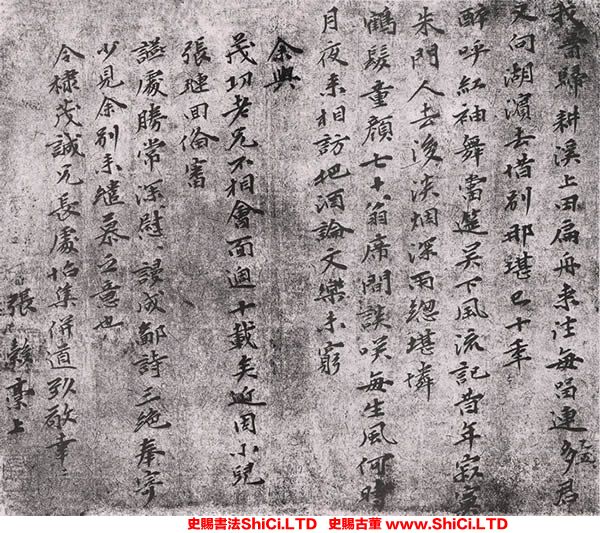 我昔歸耕溪上田扁舟來往每留連多君
又向湖濱去惜別那堪已十年
醉呼紅袖舞當筵吳下風流記昔年寂寞
朱門人去後淡烟深雨總堪憐
鶴髮童顏七十翁席間談笑每生風何時
月夜來相訪把酒論文樂未窮
余與
茂功老兄不相會面週十載矣近因小兒
張璉回偹審
謡處勝常深慰謾成鄙詩三絕奉寄
少見余別來繾慕之意也
令棣茂誠兄長處怡集併道致敬幸〻
張 稾上
史賜書法ShiCi.LTD 史賜古董 www.ShiCi.LTD